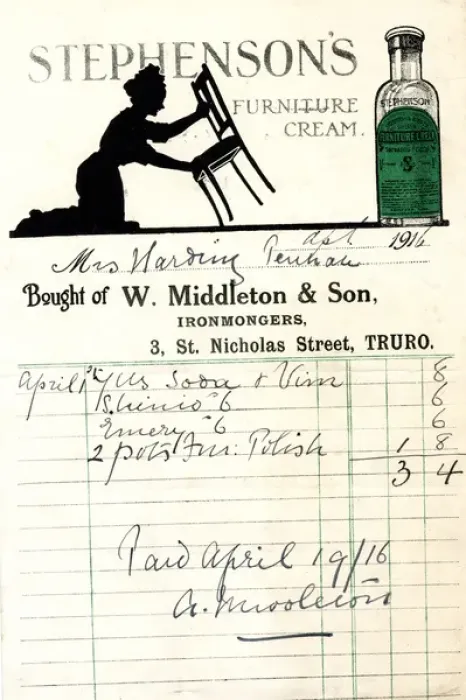 STEPHENSON'S
FURNITURE
CREAM.
STEPHENSON
FURNITURE CREAM
Apl 1916
Mrs Harding
Bought of W. Middleton & Son,
IRONMONGERS,
3, St. Nicholas Street, TRURO.
April Soda & Vim 8
6 6
Emery 6 6
2 pots Fur: Polish 1 8
3 4
Paid April 19/16
A. Middleton